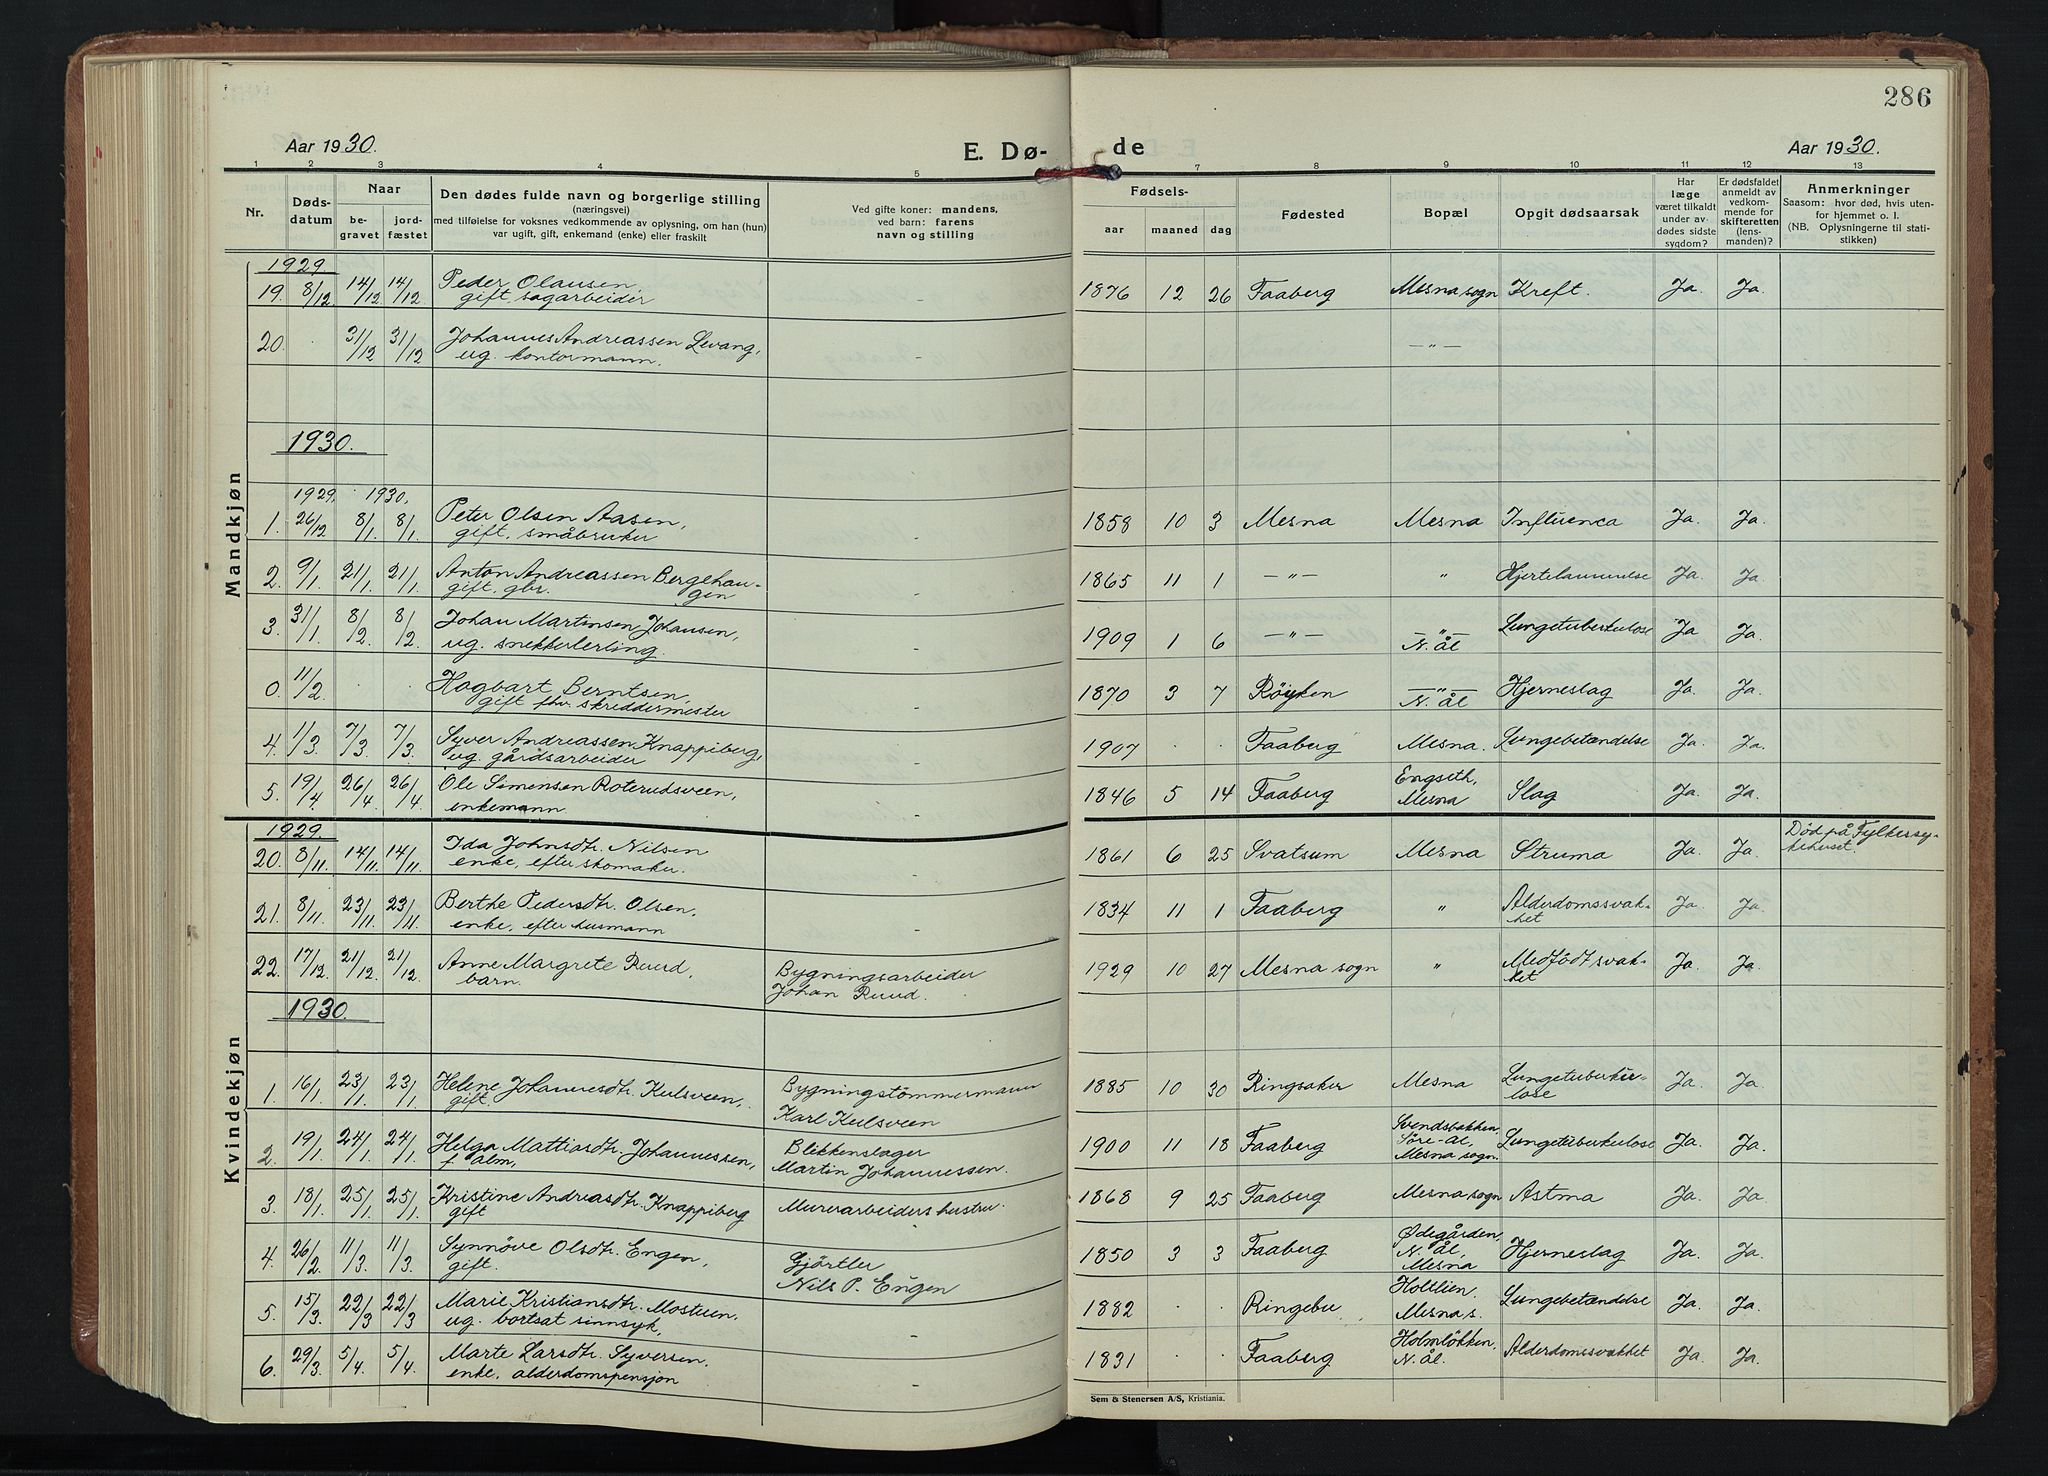 286
Aar 1930.
E. Dø-
de
Aar 1930.
1 2 3 4 5 7 8 9 10 11 12 13
Nr.
Døds-
datum
Naar
be-
gravet
jord-
fæstet
Den dødes fulde navn og borgerlige stilling
(næringsvei)
med tilføielse for voksnes vedkommende av oplysning, om han (hun)
var ugift, gift, enkemand (enke) eller fraskilt
Ved gifte koner: mandens,
ved barn: farens
navn og stilling
Fødsels-
aar maaned dag
Fødested
Bopæl
Opgit dødsaarsak
Har
læge
været tilkaldt
under av-
dødes sidste
sygdom?
Er dødsfaldet
anmeldt av
vedkom-
mende for
skifteretten
(lens-
manden)?
Anmerkninger
Saasom: hvor død, hvis uten-
for hjemmet o. l.
(NB. Oplysningerne til stati-
stikken)
Mandkjøn
1929
19. 8/12 14/12 14/12 Peder Olausen, - 1876 12 26 Faaberg Mesna sogn Kreft. Ja. Ja.
gift, sagarbeider
20. 31/12 31/12 Johannes Andreassen Levang, —"—
ug. kontormann.
1930.
1929. 1930.
1. 26/12 8/1. 8/1. Peter Olsen Aasen, - 1858 10 3 Mesna Mesna Influenca Ja. Ja.
gift, småbruker
2. 9/1. 21/1. 21/1. Anton Andreassen Bergehau- - 1865 11 1 —"— " Hjertelammelse Ja. Ja.
gift, gbr. gen
3. 31/1. 8/2. 8/2. Johan Martinsen Johansen, - 1909 1 6 —"— —"— Lungetuberkulose Ja Ja.
ug. snekkerlerling. N. ål
0. 11/2 Hagbart Berntsen, - 1870 3 7 Röyken —"— Hjerneslag Ja. Ja.
gift fhv. skreddermester N. ål
4. 1/3. 7/3. 7/3. Syver Andreassen Knappiberg, - 1907 . . Faaberg Mesna. Lungebetændelse Ja. Ja.
ug. gårdsarbeider
5. 19/4. 26/4. 26/4. Ole Simensen Roterudsveen, - 1846 5 14 Faaberg Engseth, Slag Ja. Ja.
enkemann Mesna
Kvindekjøn
1929.
20. 8/11. 14/11. 14/11. Ida Johnsdtr. Nilsen - 1861 6 25 Svatsum Mesna Struma Ja. Ja. Død på Fylkessy-
enke, efter skomaker. kehuset.
21. 8/11. 23/11. 23/11. Berthe Pedersdtr. Olsen, - 1834 11 1 Faaberg " Alderdomssvak- Ja. Ja.
enke, efter husmann het
22. 17/12. 21/12. 21/12. Anne Margrete Ruud, Bygningsarbeider 1929 10 27 Mesna sogn " Medfödt svak- Ja. Ja.
barn. Johan Ruud. het
1930.
1. 16/1. 23/1. 23/1. Helene Johannesdtr. Kulsveen, Bygningstömmermann 1885 10 30 Ringsaker Mesna Lungetuberku- Ja. Ja.
gift. Karl Kulsveen lose
2. 19/1. 24/1. 24/1. Helga Mattiasdtr. Johannessen, Blikkenslager 1900 11 18 Faaberg Svendsbakken, Lungetuberkulose Ja. Ja.
f. Alm, Martin Johannessen. Söre-ål, Mesna sogn.
3. 18/1. 25/1. 25/1. Kristine Andreasdtr. Knappiberg Murerarbeiders hustru. 1868 9 25 Faaberg Mesna sogn Astma Ja. Ja.
gift
4. 26/2. 11/3. 11/3. Synnöve Olsdtr. Engen, Gjörtler 1850 3 3 Faaberg Ødegården, Hjerneslag Ja. Ja.
gift. Nils P. Engen N. ål, Mesna
5. 15/3. 22/3 22/3 Marie Kristiansdtr. Mosteen, - 1882 . . Ringebu Holtlien. Lungebetændelse Ja. Ja.
ug. bortsat sinnsyk, Mesna s.
6. 29/3. 5/4. 5/4. Marte Larsdtr. Syversen, - 1831 . . Faaberg Holmlökken, Alderdomssvakhet Ja. Ja.
enke, alderdomspensjon N. ål.
Sem & Stenersen A/S, Kristiania.